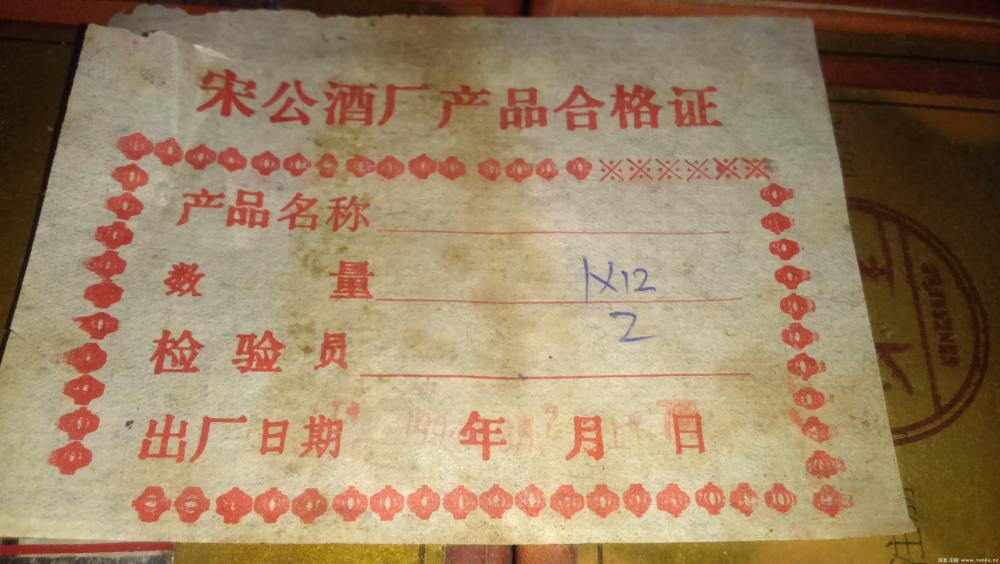 宋公酒厂产品合格证
产品名称
数量 1X12
检验员 2
出厂日期 年 月 日
注册